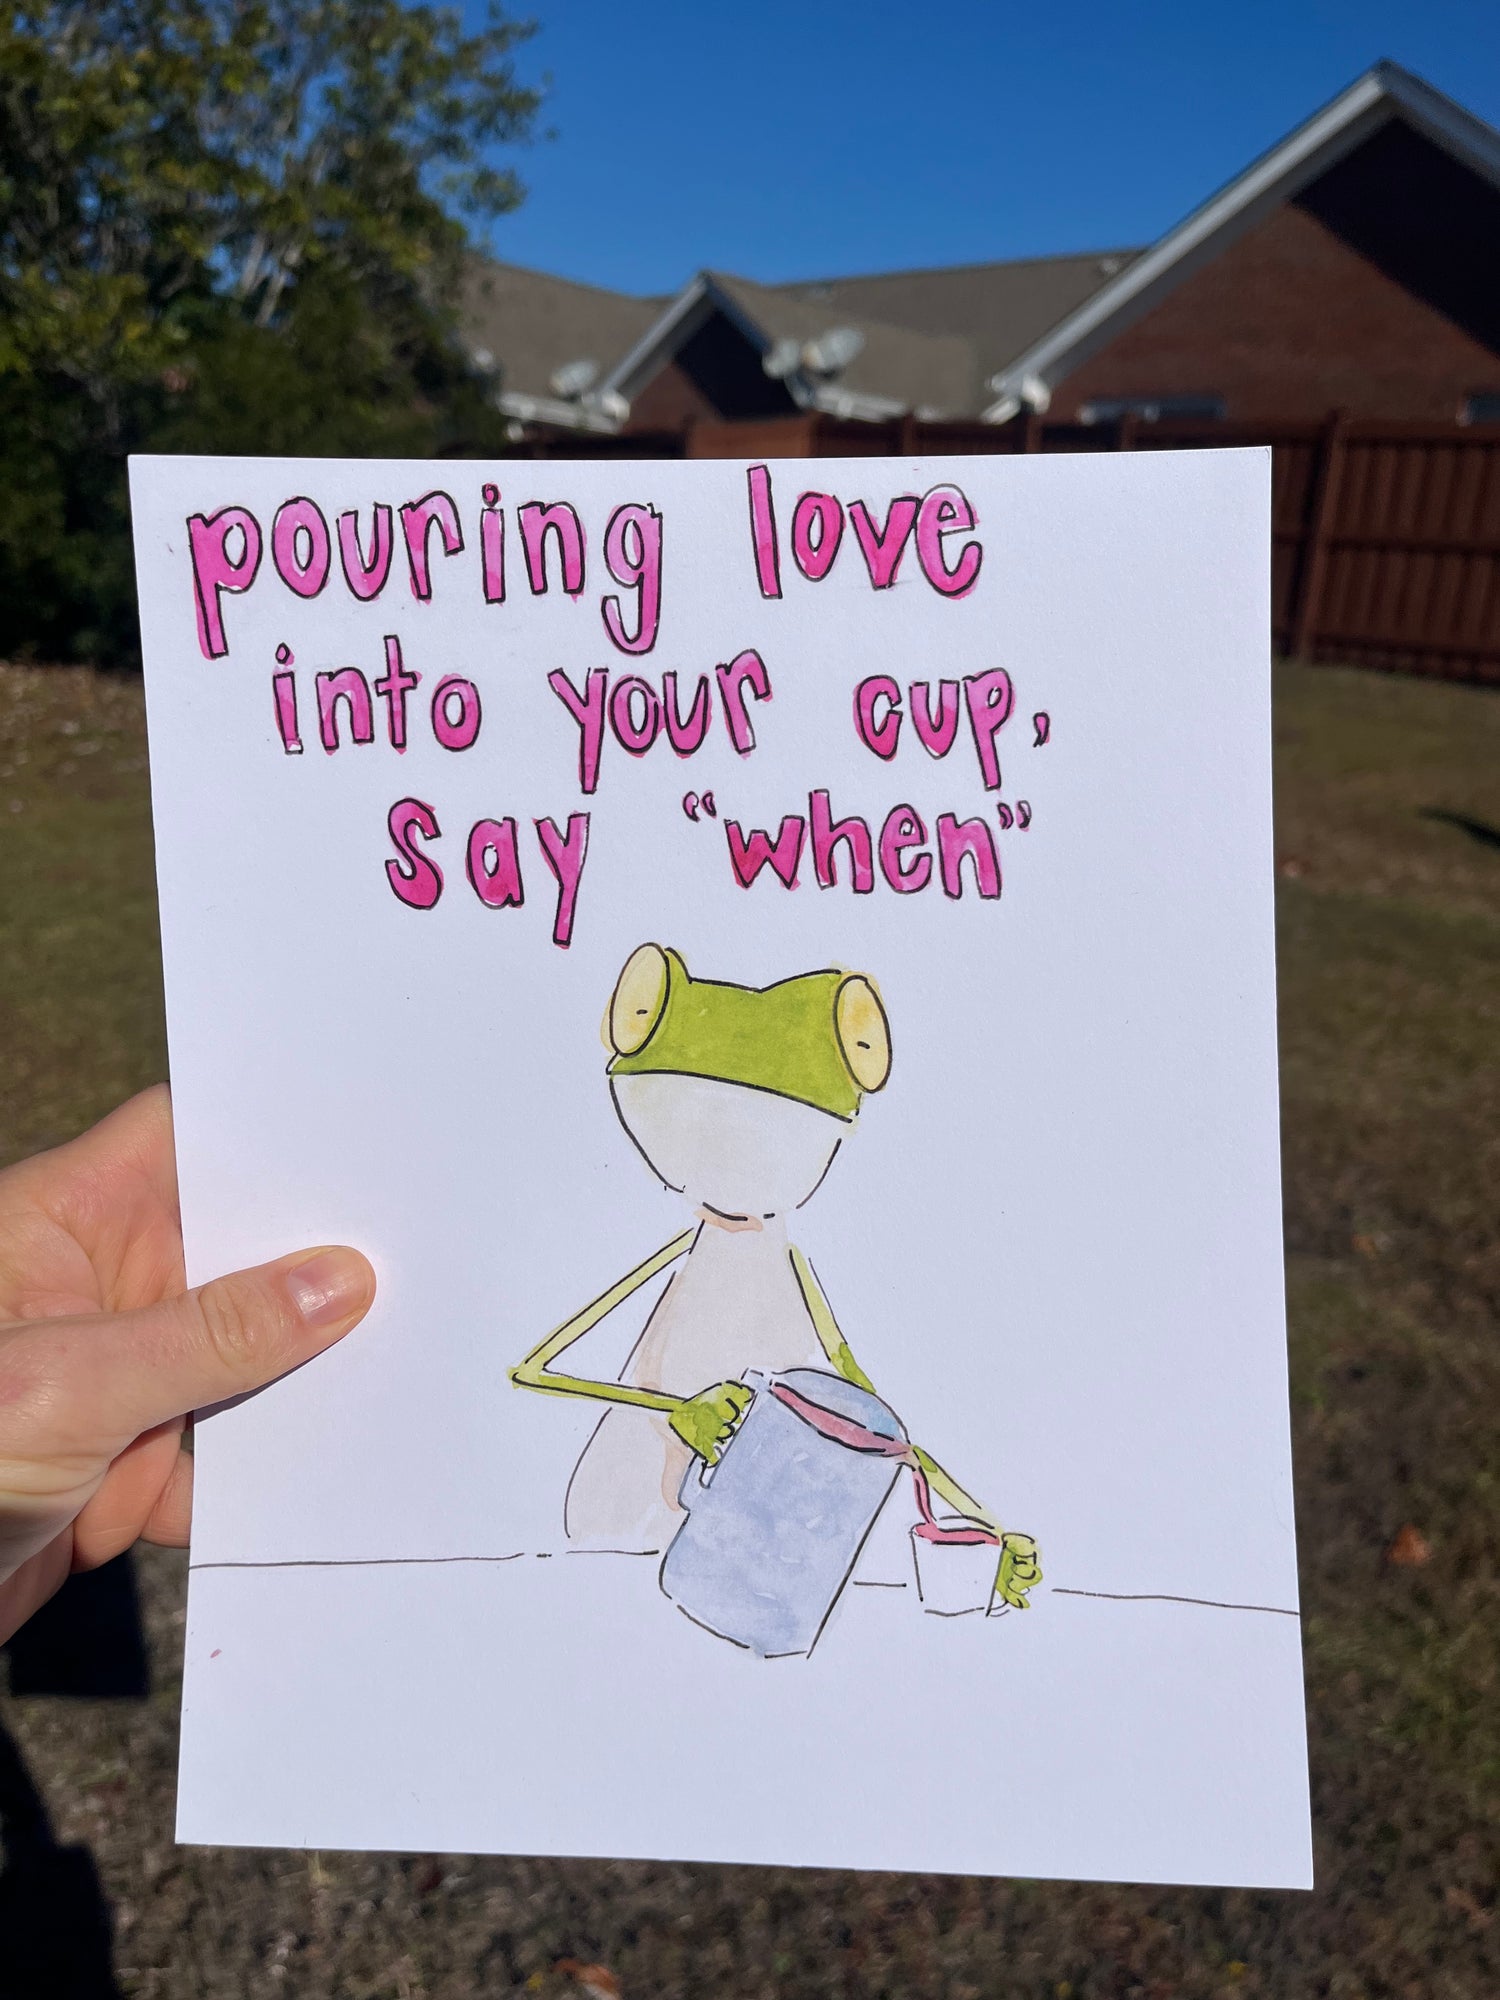 pouring love
into your cup,
say "when"